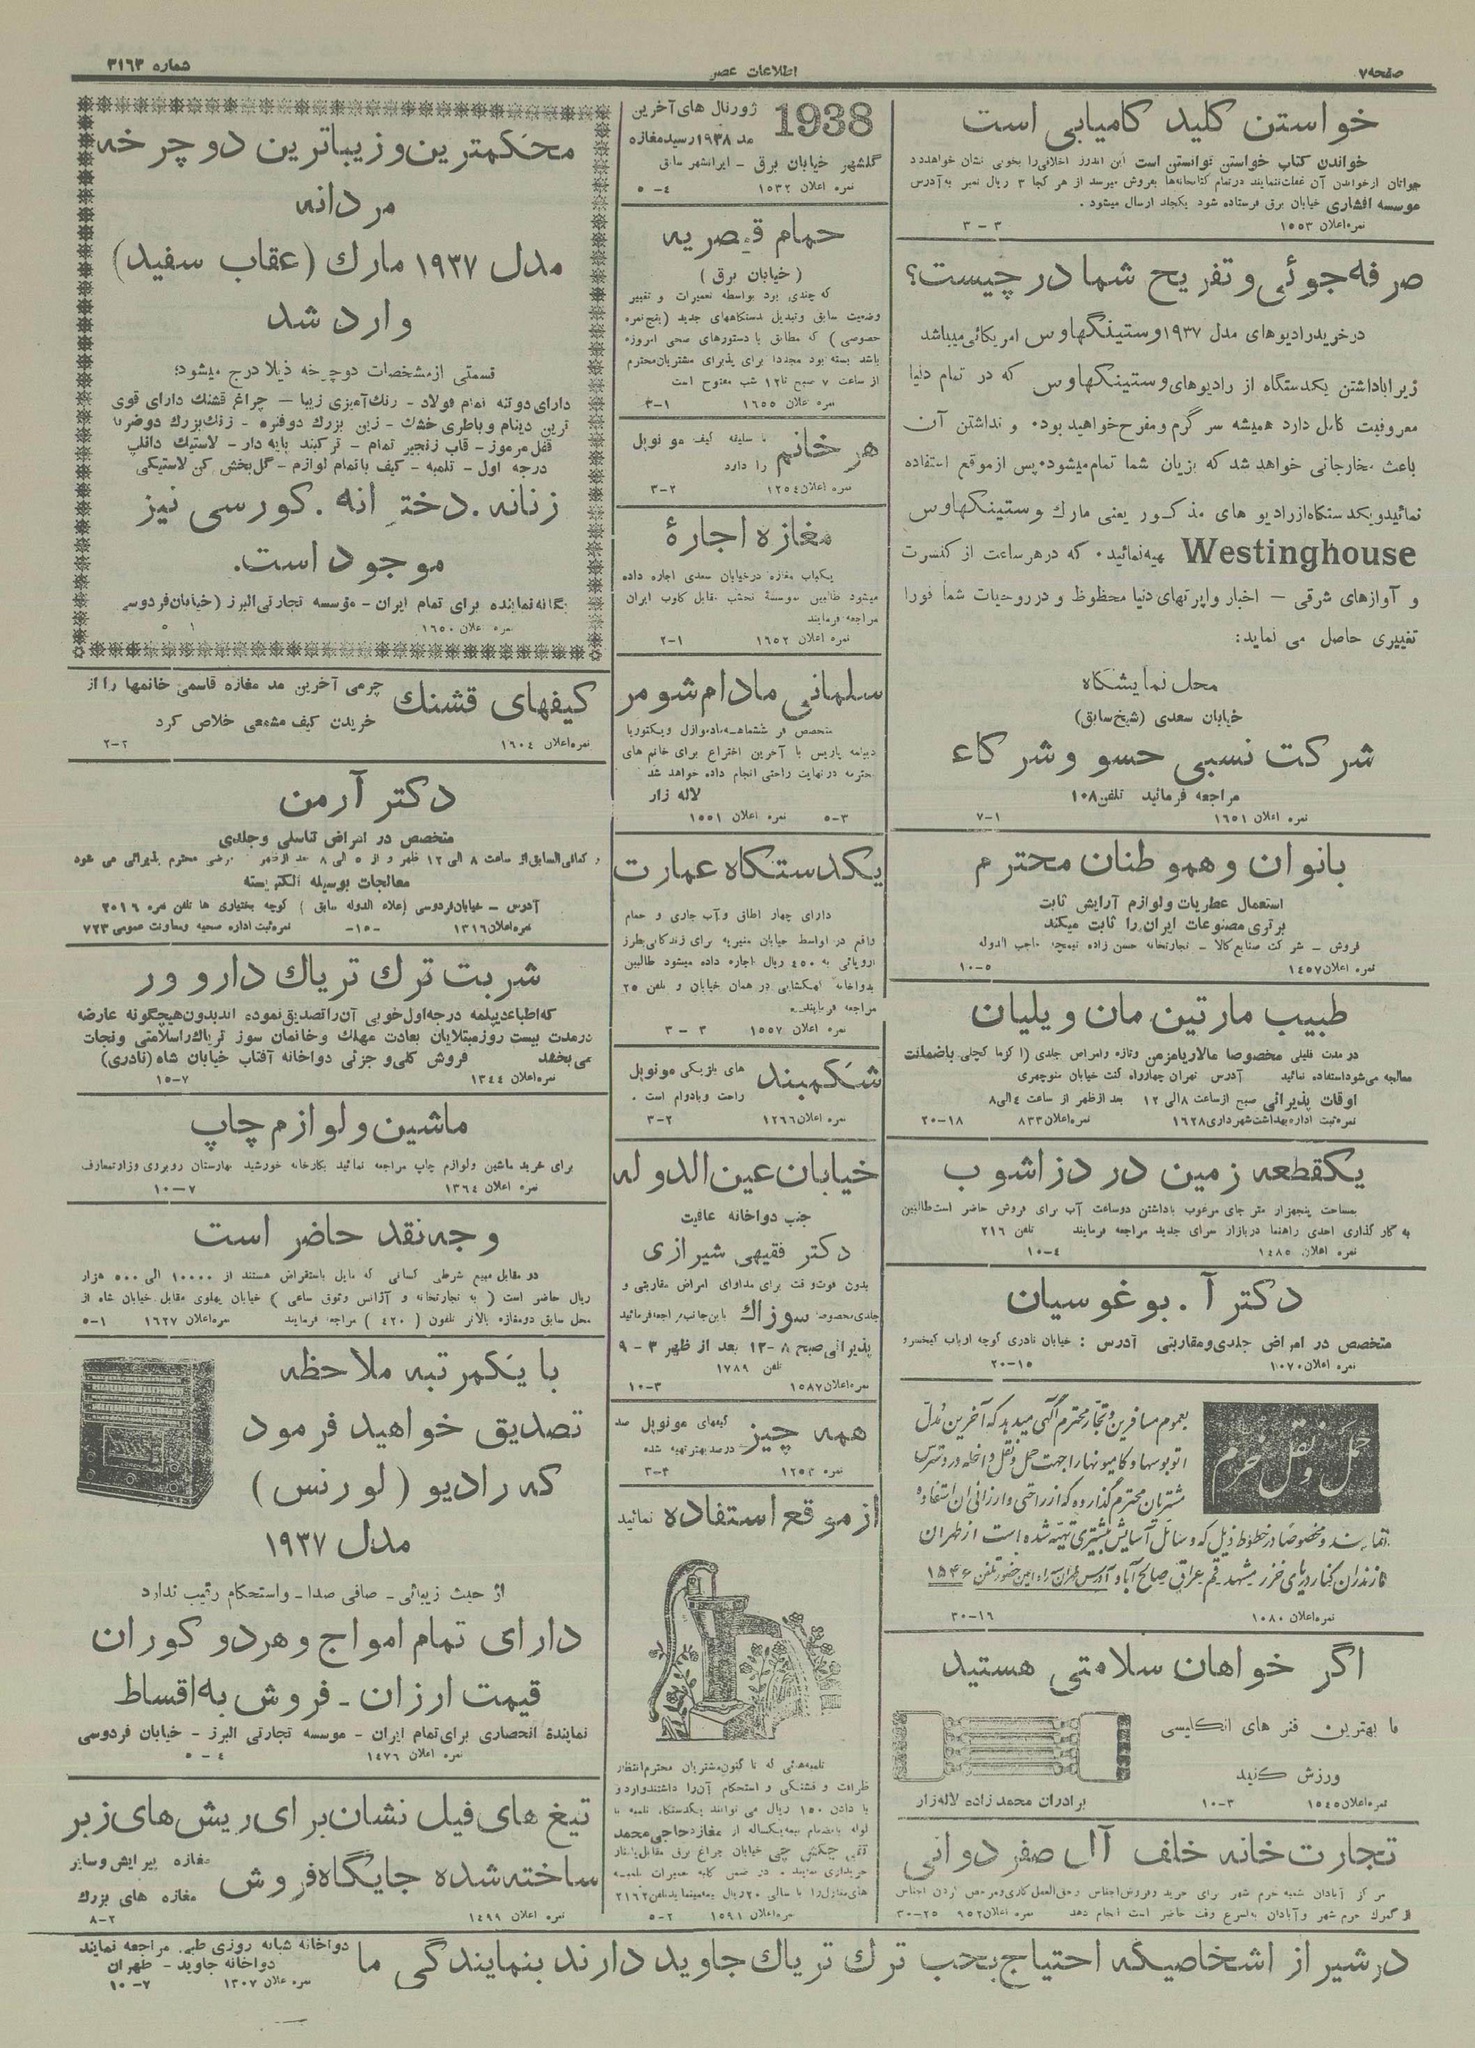 صفحه ۷
اطلاعات عصر
شماره ۳۱۶۳
خواستن کلید کامیابی است
خواندن کتاب خواستن توانستن است این اندرز اخلاقی را بخوبی نشان خواهد داد
جوانان از خواندن آن غفلت ننمایند در تمام کتابخانه‌ها بفروش میرسد از هر کجا ۳ ریال تمبر به آدرس
موسسه افشاری خیابان برق فرستاده شود یکجلد ارسال میشود .
نمره اعلان ۱۵۵۳ ۳ – ۳
صرفه جوئی و تفریح شما در چیست؟
در خرید رادیوهای مدل ۱۹۳۷ وستینگهاوس امریکائی میباشد
زیرا با داشتن یکدستگاه از رادیوهای وستینگهاوس که در تمام دنیا
معروفیت کامل دارد همیشه سرگرم و مفرح خواهید بود. و نداشتن آن
باعث مخارجاتی خواهد شد که بزیان شما تمام میشود. پس از موقع استفاده
نمائید و یکدستگاه از رادیو های مذکور یعنی مارک وستینگهاوس
Westinghouse تهیه نمائید. که در هر ساعت از کنسرت
و آوازهای شرقی – اخبار و اپرتهای دنیا محظوظ و در روحیات شما فورا
تغییری حاصل می نماید:
محل نمایشگاه
خیابان سعدی (شیخ سابق)
شرکت نسبی حسو و شرکاء
مراجعه فرمائید تلفن ۱۰۸
نمره اعلان ۱۶۵۱ ۱–۷
بانوان و هموطنان محترم
استعمال عطریات و لوازم آرایش ثابت
برتری مصنوعات ایران را ثابت میکند
فروش – شرکت صنایع کالا – تجارتخانه حسن زاده تیمچه حاجب الدوله
نمره اعلان ۱۴۵۷ ۵–۱۰
طبیب مارتین مانویلیان
در مدت قلیلی مخصوصا مالاریا مزمن و تازه و امراض جلدی (اکزما کچلی) با ضمانت
معالجه می‌شود استفاده نمائید آدرس تهران چهارراه کنت خیابان منوچهری
اوقات پذیرائی صبح از ساعت ۸ الی ۱۲ بعد از ظهر از ساعت ۴ الی ۸
نمره ثبت اداره بهداشت شهرداری ۱۶۲۸ نمره اعلان ۸۳۳ ۱۸–۲۰
یکقطعه زمین در دزاشوب
بمساحت پنجهزار متر جای مرغوب با داشتن دو ساعت آب برای فروش حاضر است طالبین
به کارگذاری احدی راهنما در بازار سرای جدید مراجعه فرمایند تلفن ۲۱۶
نمره اعلان ۱۴۸۵ ۴–۱۰
دکتر آ. بوغوسیان
متخصص در امراض جلدی و مقاربتی آدرس : خیابان نادری کوچه ارباب کیخسرو
نمره اعلان ۱۰۷۰ ۱۵–۲۰
حمل و نقل خرم
بعموم مسافرین و تجار محترم آگهی میدهد که آخرین مدل
اتوبوسها و کامیونها را جهت حمل و نقل داخله در دسترس
مشتریان محترم گذارده که از راحتی و ارزانی آن استفاده
نمایند و مخصوصا در خطوط ذیل که وسایل آسایش بیشتری تهیه شده است از طهران
مازندران کنار دریای خزر مشهد قم عراق صالح آباد آدرس طهران سه راه امین حضور تلفن ۱۵۴۶
نمره اعلان ۱۰۸۰ ۱۶–۳۰
اگر خواهان سلامتی هستید
با بهترین فنر های انگلیسی
ورزش کنید
برادران محمد زاده لاله‌زار
نمره اعلان ۱۵۴۵ ۳–۱۰
تجارتخانه خلف آل صفر دوانی
مرکز آبادان شعبه خرم شهر برای خرید و فروش اجناس و حق‌العمل کاری و مرخص کردن اجناس
از گمرک خرم شهر و آبادان به اسرع وقت حاضر است انجام دهد نمره اعلان ۹۵۲ ۲۵–۳۰
1938 ژورنال های آخرین
مد ۱۹۳۸ رسید مغازه
گلشهر خیابان برق – ایرانشهر سابق
نمره اعلان ۱۵۳۲ ۴–۵
حمام قیصریه
( خیابان برق )
که چندی بود بواسطه تعمیرات و تغییر
وضعیت سابق و تبدیل بدستگاههای جدید (پنج نمره
خصوصی) که مطابق با دستورهای صحی امروزه
باشد بسته بود مجددا برای پذیرائی مشتریان محترم
از ساعت ۷ صبح تا ۱۲ شب مفتوح است
نمره اعلان ۱۶۵۵ ۱–۳
هر خانم با سلیقه کیف مونوپل
را دارد
نمره اعلان ۱۲۵۴ ۲–۳
مغازه اجارهٔ
یکباب مغازه در خیابان سعدی اجاره داده
میشود طالبین بموسسهٔ تحبب مقابل کلوب ایران
مراجعه فرمایند
نمره اعلان ۱۶۵۲ ۱–۲
سلمانی مادام شومر
متخصص در ششماهه
دیپلمه پاریس با آخرین اختراع برای خانم های
محترمه در نهایت راحتی انجام داده خواهد شد
لاله زار
نمره اعلان ۱۵۵۱ ۳–۵
یکدستگاه عمارت
دارای چهار اطاق و آب جاری و حمام
واقع در اواسط خیابان منیریه برای زندگانی بطرز
اروپائی به ۴۵۰ ریال اجاره داده میشود طالبین
بدواخانه در همان خیابان و تلفن ۲۵
مراجعه فرمایند.
نمره اعلان ۱۵۵۷ ۳ – ۳
شکمبند های بلژیکی مونوپل
راحت و بادوام است .
نمره اعلان ۱۲۶۶ ۲–۳
خیابان عین الدوله
جنب دواخانه عافیت
دکتر فقیهی شیرازی
بدون فوت وقت برای مداوای امراض مقاربتی و
جلدی مخصوصا سوزاک باین جانب مراجعه فرمائید
پذیرائی صبح ۸–۱۲ بعد از ظهر ۳–۹
تلفن ۱۷۸۹
نمره اعلان ۱۵۸۷ ۳–۱۰
همه چیز کیفهای مونوپل صد
درصد بهتر تهیه شده
نمره اعلان ۱۲۵۳ ۲–۳
از موقع استفاده نمائید
تلمبه‌هائی که تا کنون مشتریان محترم انتظار
ظرافت و قشنگی و استحکام آن را داشتند وارد و
با دادن ۱۵۰ ریال می توانند یکدستگاه تلمبه با
لوله بانضمام بیمه یکساله از مغازه حاجی محمد
تقی چکش چی خیابان چراغ برق
خریداری نمایند. در ضمن کلیه تعمیرات تلمبه
های منازل را با سالی ۲۰ ریال بیمه مینماید تلفن ۲۱۶۲
نمره اعلان ۱۵۹۱ ۲–۵
محکمترین و زیباترین دوچرخه
مردانه
مدل ۱۹۳۷ مارک (عقاب سفید)
وارد شد
قسمتی از مشخصات دوچرخه ذیلا درج میشود؛
دارای دو تنه تمام فولاد – رنگ آمیزی زیبا – چراغ قشنگ دارای قوی
ترین دینام و باطری خشک – زین بزرگ دو فنره – زنگ بزرگ دو ضربه
قفل مرموز – قاب زنجیر تمام – ترکبند پایه دار – لاستیک دانلپ
درجه اول – تلمبه – کیف با تمام لوازم – گل پخش کن لاستیکی
زنانه. دخترانه. کورسی نیز
موجود است.
یگانه نماینده برای تمام ایران – مؤسسه تجارتی البرز (خیابان فردوسی)
نمره اعلان ۱۶۵۰ ۱ ۵
کیفهای قشنگ چرمی آخرین مد مغازه قاسمی خانمها را از
خریدن کیف مشمعی خلاص کرد
نمره اعلان ۱۶۰۴ ۲–۲
دکتر آرمن
متخصص در امراض تناسلی و جلدی
و کمافی‌السابق از ساعت ۸ الی ۱۲ ظهر و از ۵ الی ۸ بعد از ظهر مرضی محترم پذیرائی می شود
معالجات بوسیله الکتریسته
آدرس – خیابان فردوسی (علاء الدوله سابق) کوچه بختیاری ها تلفن نمره ۲۰۱۶
نمره اعلان ۱۳۱۶ –۱۵– نمره ثبت اداره صحیه و معاونت عمومی ۷۲۳
شربت ترک تریاک داروور
که اطباء دیپلمه درجه اول خوبی آن را تصدیق نموده اند بدون هیچگونه عارضه
در مدت بیست روز مبتلایان بعادت مهلک و خانمان سوز تریاک را سلامتی و نجات
می‌بخشد فروش کلی و جزئی دواخانه آفتاب خیابان شاه (نادری)
نمره اعلان ۱۳۴۴ ۷–۱۵
ماشین و لوازم چاپ
برای خرید ماشین و لوازم چاپ مراجعه نمائید بکارخانه خورشید بهارستان روبروی وزارت معارف
نمره اعلان ۱۳۶۴ ۷–۱۰
وجه نقد حاضر است
در مقابل مبیع شرطی کسانی که مایل باستقراض هستند از ۱۰۰۰۰ الی ۵۰۰ هزار
ریال حاضر است (به تجارتخانه و آژانس وثوق ساعی) خیابان پهلوی مقابل خیابان شاه از
محل سابق دو مغازه بالاتر تلفون (۴۲۰) مراجعه فرمایند نمره اعلان ۱۶۲۷ ۱–۵
با یکمرتبه ملاحظه
تصدیق خواهید فرمود
که رادیو (لورنس)
مدل ۱۹۳۷
از حیث زیبائی – صافی صدا – و استحکام رقیب ندارد
دارای تمام امواج و هر دو کوران
قیمت ارزان – فروش به اقساط
نمایندهٔ انحصاری برای تمام ایران – موسسه تجارتی البرز – خیابان فردوسی
نمره اعلان ۱۴۷۶ ۴–۵
تیغ های فیل نشان برای ریش های زبر
ساخته شده جایگاه فروش مغازه پیرایش و سایر
مغازه های بزرگ
نمره اعلان ۱۴۹۹ ۲–۸
در شیراز اشخاصیکه احتیاج بحب ترک تریاک جاوید دارند بنمایندگی ما دواخانه شبانه روزی طبی مراجعه نمایند
دواخانه جاوید – طهران
نمره اعلان ۱۳۰۷ ۷–۱۰